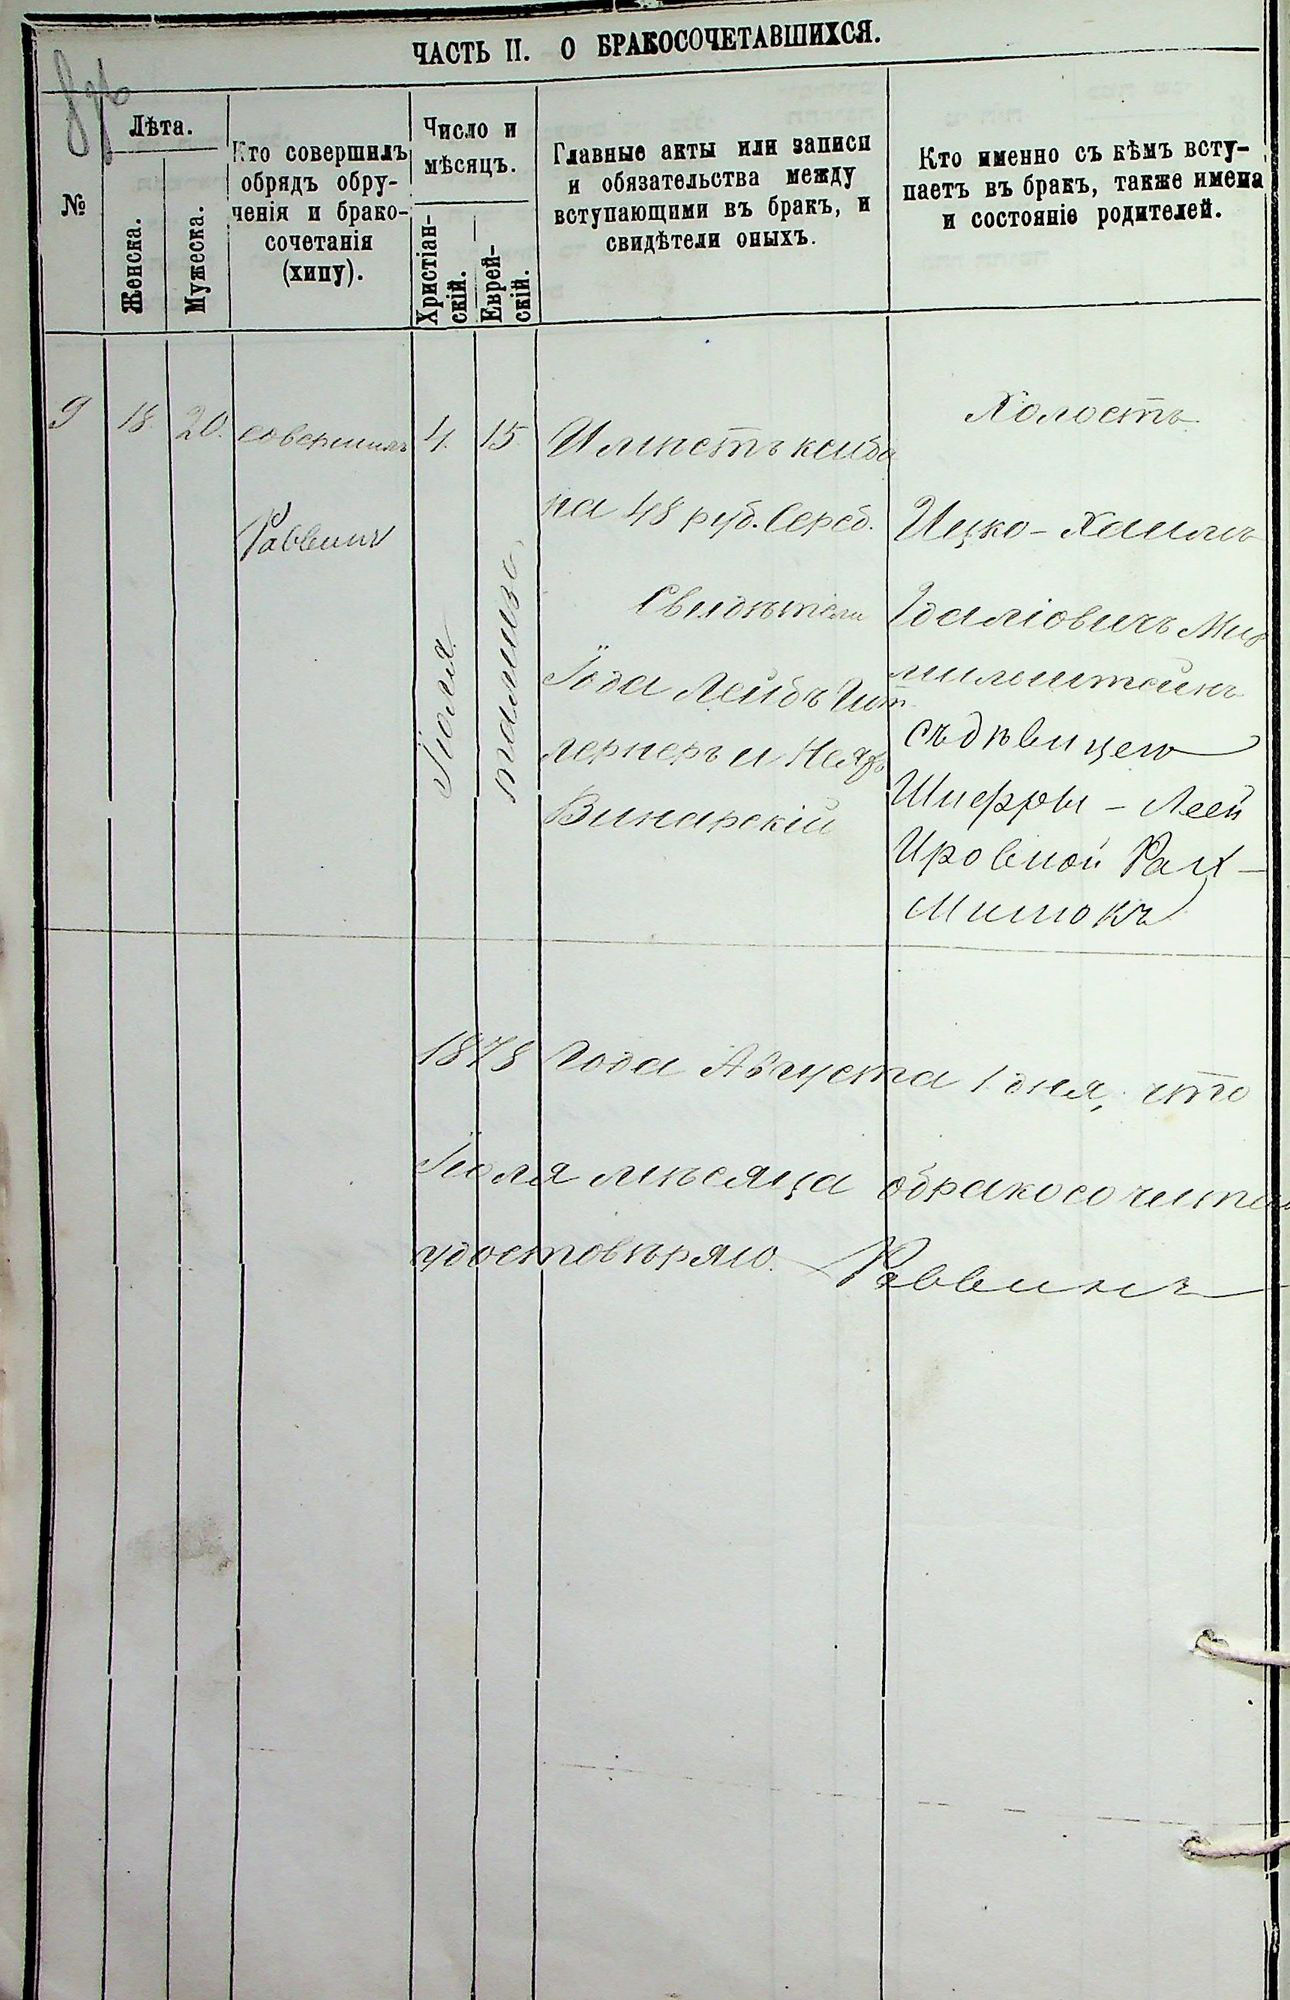 ЧАСТЬ II. О БРАКОСОЧЕТАВШИХСЯ.
№
Лѣта.
Женска.
Мужеска.
Кто совершилъ
обрядъ обру-
ченія и брако-
сочетанія
(хипу).
Число и
мѣсяцъ.
Христіан-
скій.
Еврей-
скій.
Главные акты или записи
и обязательства между
вступающими въ бракъ, и
свидѣтели оныхъ.
Кто именно съ кѣмъ всту-
паетъ въ бракъ, также имена
и состояніе родителей.
9
18
20.
совершилъ
Раввинъ
4.
Іюля
15
тамиза
на 48 руб. Сереб.
Свидѣтели
Іода Лейбъ
Винарскій
Холостъ
Ицко-Хаимъ
Гдаліовичъ
мильштейнъ
съ дѣвицею
Шифры - Леей
Ировной Рах-
1878 Года Августа 1 дня, что
Іюля мѣсяца
удостовѣряю. Раввинъ